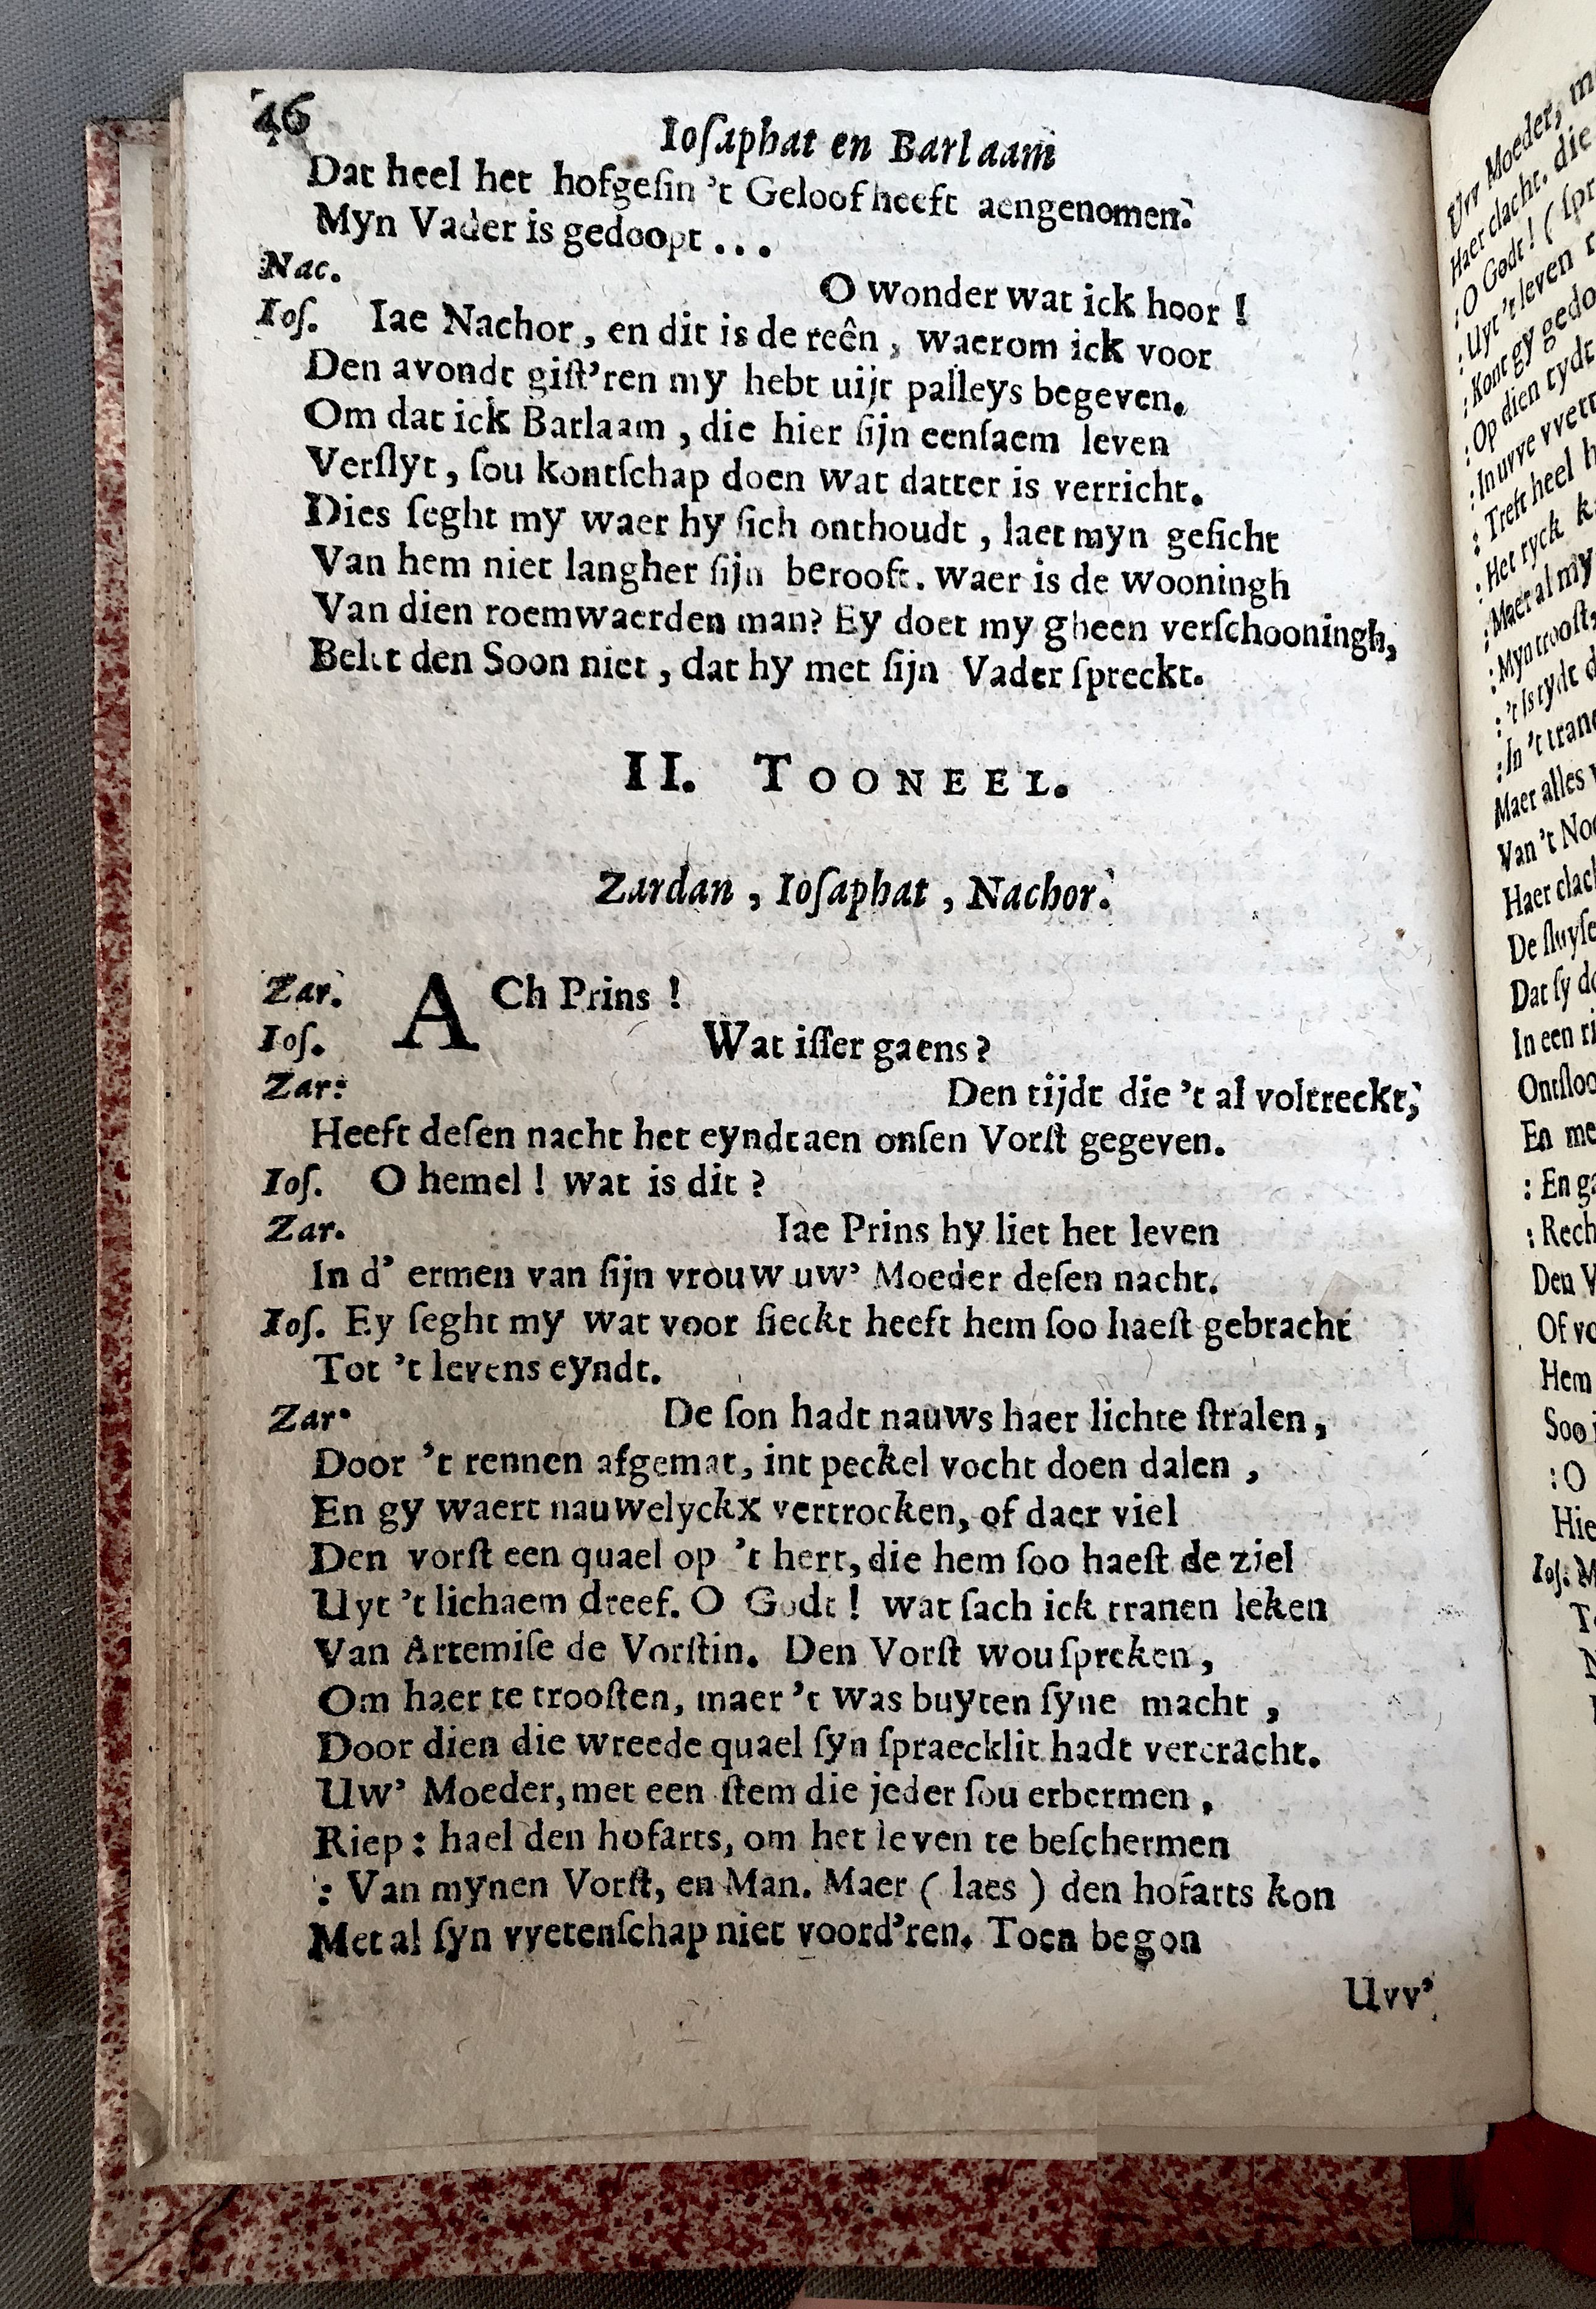 46
Ioſaphat en Barlaam
Dat heel het hofgeſin 't Geloof heeft aengenomen.
Myn Vader is gedoopt ...
Nac.
O wonder wat ick hoor !
Ioſ. Iae Nachor, en dit is de reên, waerom ick voor
Den avondt giſt'ren my hebt uijt palleys begeven.
Om dat ick Barlaam, die hier ſijn eenſaem leven
Verſlyt, ſou kontſchap doen wat datter is verricht.
Dies ſeght my waer hy ſich onthoudt, laet myn geſicht
Van hem niet langher ſijn berooft. waer is de wooningh
Van dien roemwaerden man? Ey doet my gheen verſchooningh,
Belet den Soon niet, dat hy met ſijn Vader ſpreckt.
II. TOONEEL.
Zardan, Ioſaphat, Nachor.
Zar. ACh Prins !
Ioſ. Wat iſſer gaens?
Zar: Den tijdt die 't al voltreckt,
Heeft deſen nacht het eyndt aen onſen Vorſt gegeven.
Ioſ. O hemel ! wat is dit ?
Zar. Iae Prins hy liet het leven
In d' ermen van ſijn vrouw uw' Moeder deſen nacht.
Ioſ. Ey ſeght my wat voor ſieckt heeft hem ſoo haeſt gebracht
Tot 't levens eyndt.
Zar. De ſon hadt nauws haer lichte ſtralen,
Door 't rennen afgemat, int peckel vocht doen dalen,
En gy waert nauwelyckx vertrocken, of daer viel
Den vorſt een quael op 't hert, die hem ſoo haeſt de ziel
Uyt 't lichaem dreef. O Godt ! wat ſach ick tranen leken
Van Artemiſe de Vorſtin. Den Vorſt wou ſpreken,
Om haer te trooſten, maer 't was buyten ſyne macht,
Door dien die wreede quael ſyn ſpraecklit hadt vercracht.
Uw' Moeder, met een ſtem die jeder ſou erbermen,
Riep : hael den hofarts, om het leven te beſchermen
: Van mynen Vorſt, en Man. Maer ( laes ) den hofarts kon
Met al ſyn vvetenſchap niet voord'ren. Toen begon
Uvv'
Uvv Moeder,
Haer clacht. die
: O Godt ! (
: Uyt 't leven
: Kont gy gedo
: Op dien tydt
: In uvve
: Treft heel
: Het ryck
: Maer al my
: Myn trooſt,
: 't Is tydt
: In 't
Maer alles
Van 't
Haer
De
Dat ſy
In een
En
: En
Den
Of
Hem
Soo
: O
Ioſ.